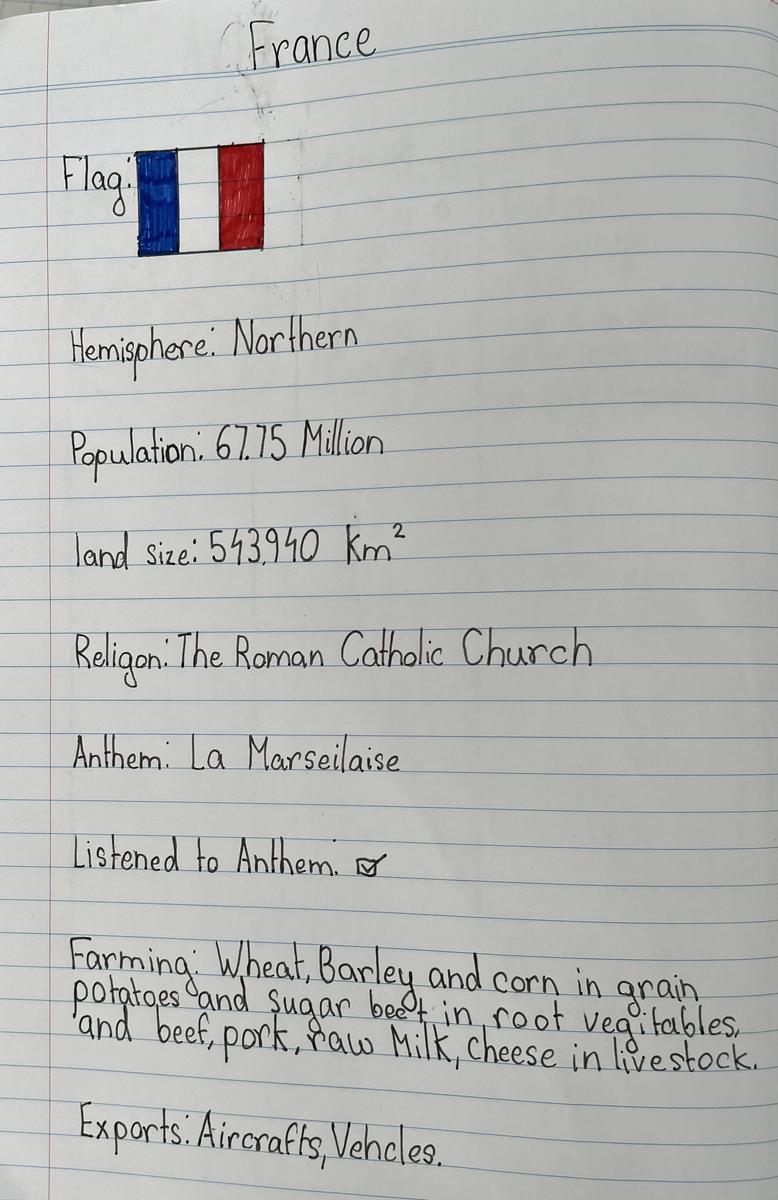 France
Flag:
Hemisphere: Northern
Population: 67.75 Million
land size: 543,940 km²
Religon: The Roman Catholic Church
Anthem: La Marseilaise
Listened to Anthem: ☑
Farming: Wheat, Barley and corn in grain
potatoes and sugar beet in root vegitables,
and beef, pork, raw Milk, cheese in livestock.
Exports: Aircrafts, Vehcles.